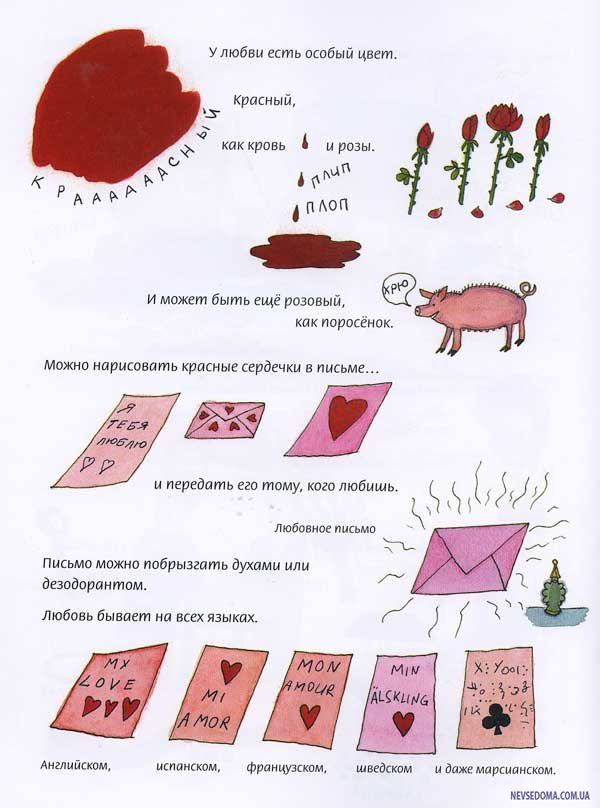 У любви есть особый цвет.
Красный,
КРАААААСНЫЙ
как кровь и розы.
ПЛИП
ПЛОП
ХРЮ
И может быть ещё розовый,
как поросёнок.
Можно нарисовать красные сердечки в письме...
Я
ТЕБЯ
ЛЮБЛЮ
и передать его тому, кого любишь.
Любовное письмо
Письмо можно побрызгать духами или
дезодорантом.
Любовь бывает на всех языках.
MY
LOVE
MI
AMOR
MON
AMOUR
MIN
ÄLSKLING
Английском, испанском, французском, шведском и даже марсианском.
NEVSEDOMA.COM.UA